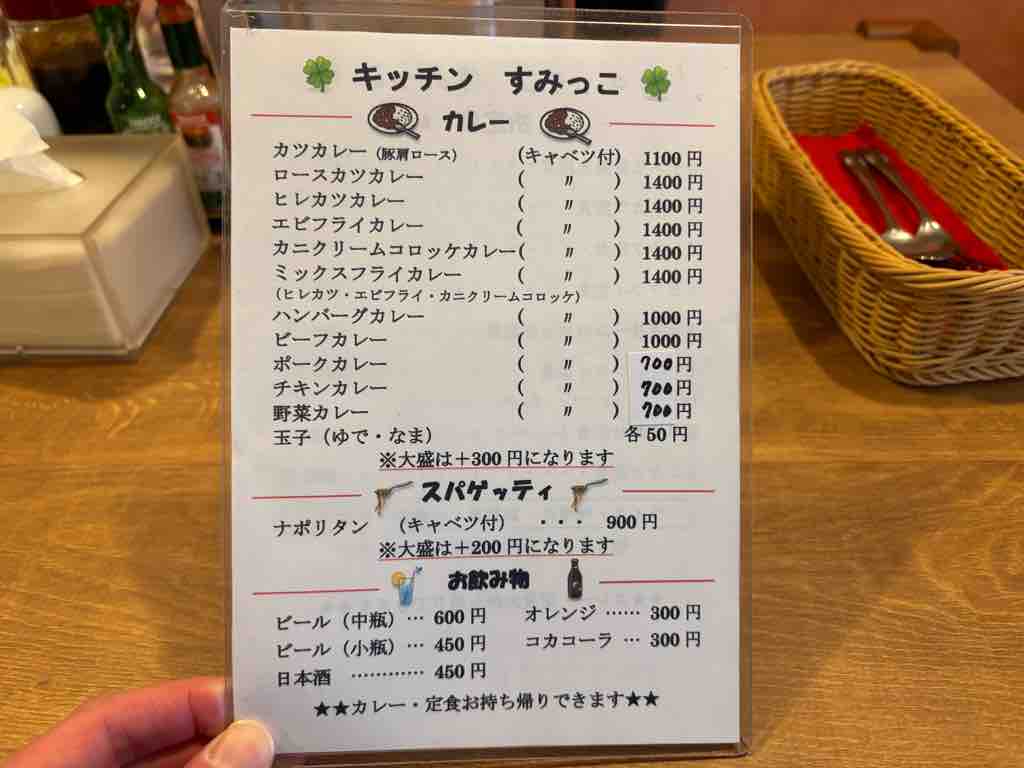 キッチン すみっこ
カレー
カツカレー（豚肩ロース） （キャベツ付） 1100円
ロースカツカレー （ 〃 ） 1400円
ヒレカツカレー （ 〃 ） 1400円
エビフライカレー （ 〃 ） 1400円
カニクリームコロッケカレー（ 〃 ） 1400円
ミックスフライカレー （ 〃 ） 1400円
（ヒレカツ・エビフライ・カニクリームコロッケ）
ハンバーグカレー （ 〃 ） 1000円
ビーフカレー （ 〃 ） 1000円
ポークカレー （ 〃 ） 700円
チキンカレー （ 〃 ） 700円
野菜カレー （ 〃 ） 700円
玉子（ゆで・なま） 各50円
※大盛は＋300円になります
スパゲッティ
ナポリタン （キャベツ付） ・・・ 900円
※大盛は＋200円になります
お飲み物
ビール（中瓶）… 600円 オレンジ …… 300円
ビール（小瓶）… 450円 コカコーラ … 300円
日本酒 ………… 450円
★★カレー・定食お持ち帰りできます★★